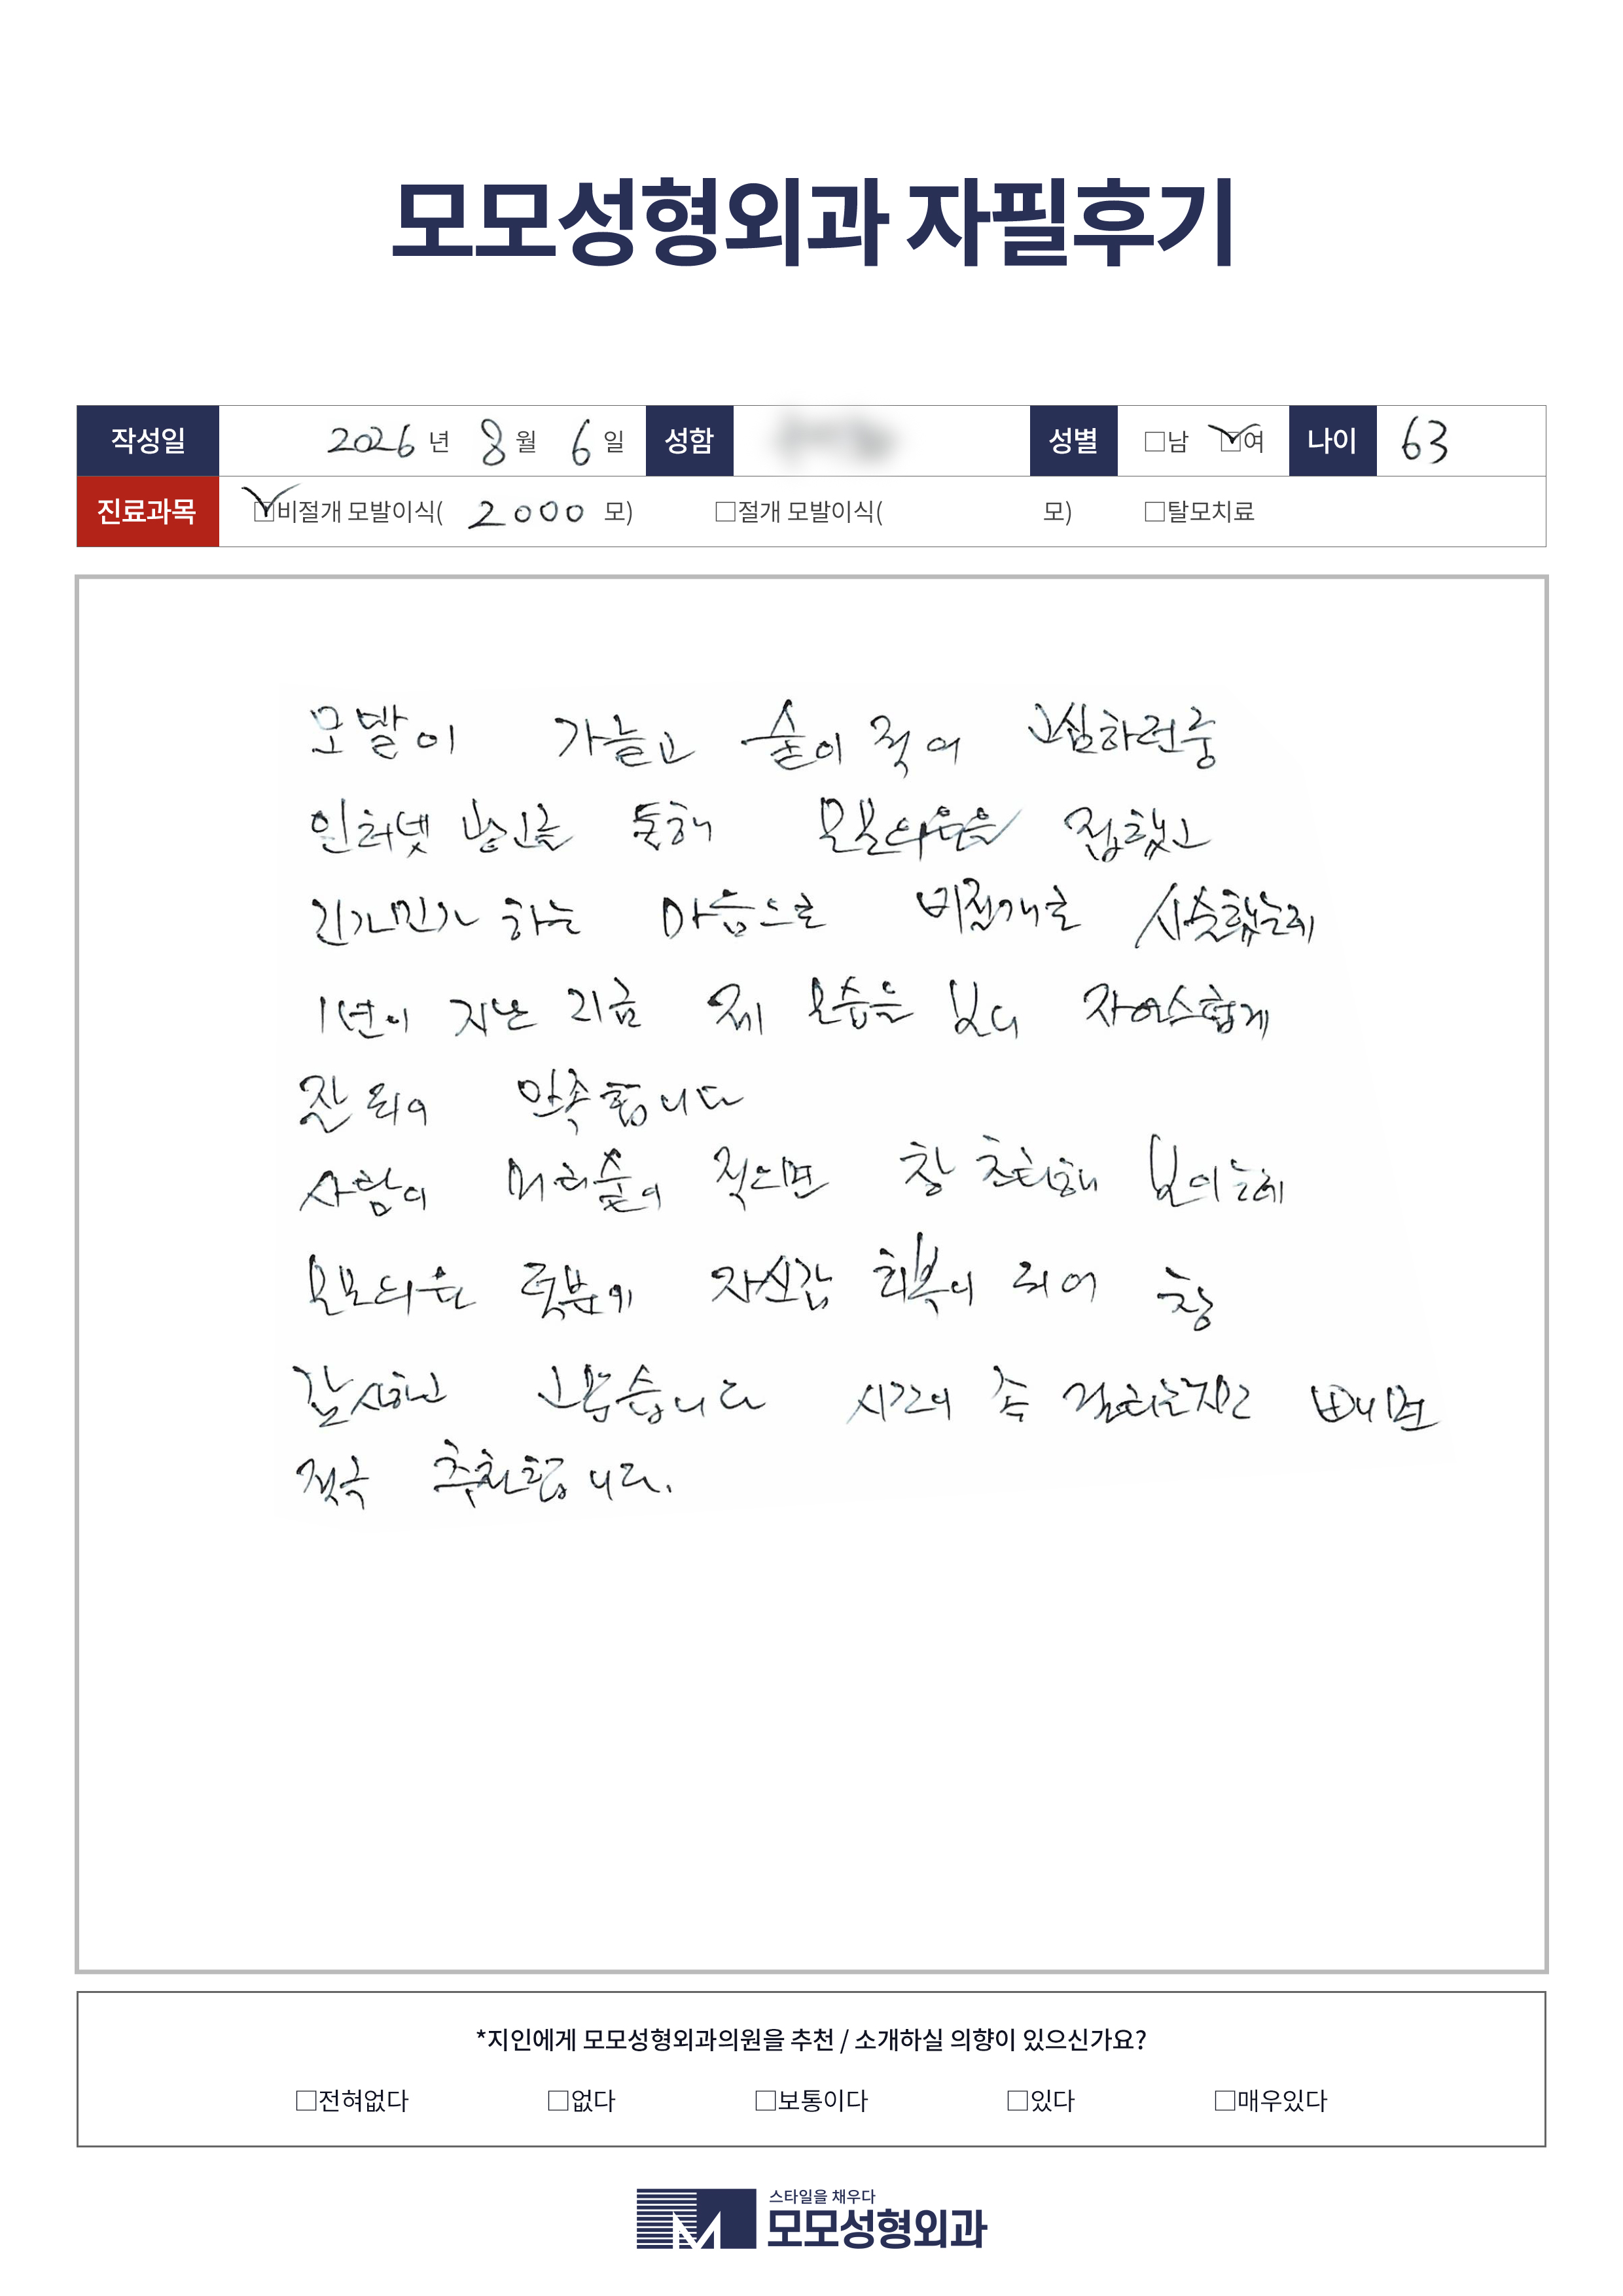 모모성형외과 자필후기
작성일 2026 년 8 월 6 일 성함 성별 □남 □여 나이 63
진료과목 □비절개 모발이식( 2000 모) □절개 모발이식( 모) □탈모치료
모발이 가늘고 숱이 적어 고심하던중
인터넷 광고를 통해 모모의원을 접했고
긴가민가 하는 마음으로 비절개로 시술했는데
1년이 지난 지금 제 모습을 보니 자연스럽게
잘 되어 만족합니다
사람이 머리숱이 적으면 참 초라해 보이는데
모모의원 덕분에 자신감 회복이 되어 참
감사하고 고맙습니다 시간이 좀 걸리는지만
적극 추천합니다.
*지인에게 모모성형외과의원을 추천 / 소개하실 의향이 있으신가요?
□전혀없다 □없다 □보통이다 □있다 □매우있다
스타일을 채우다
모모성형외과